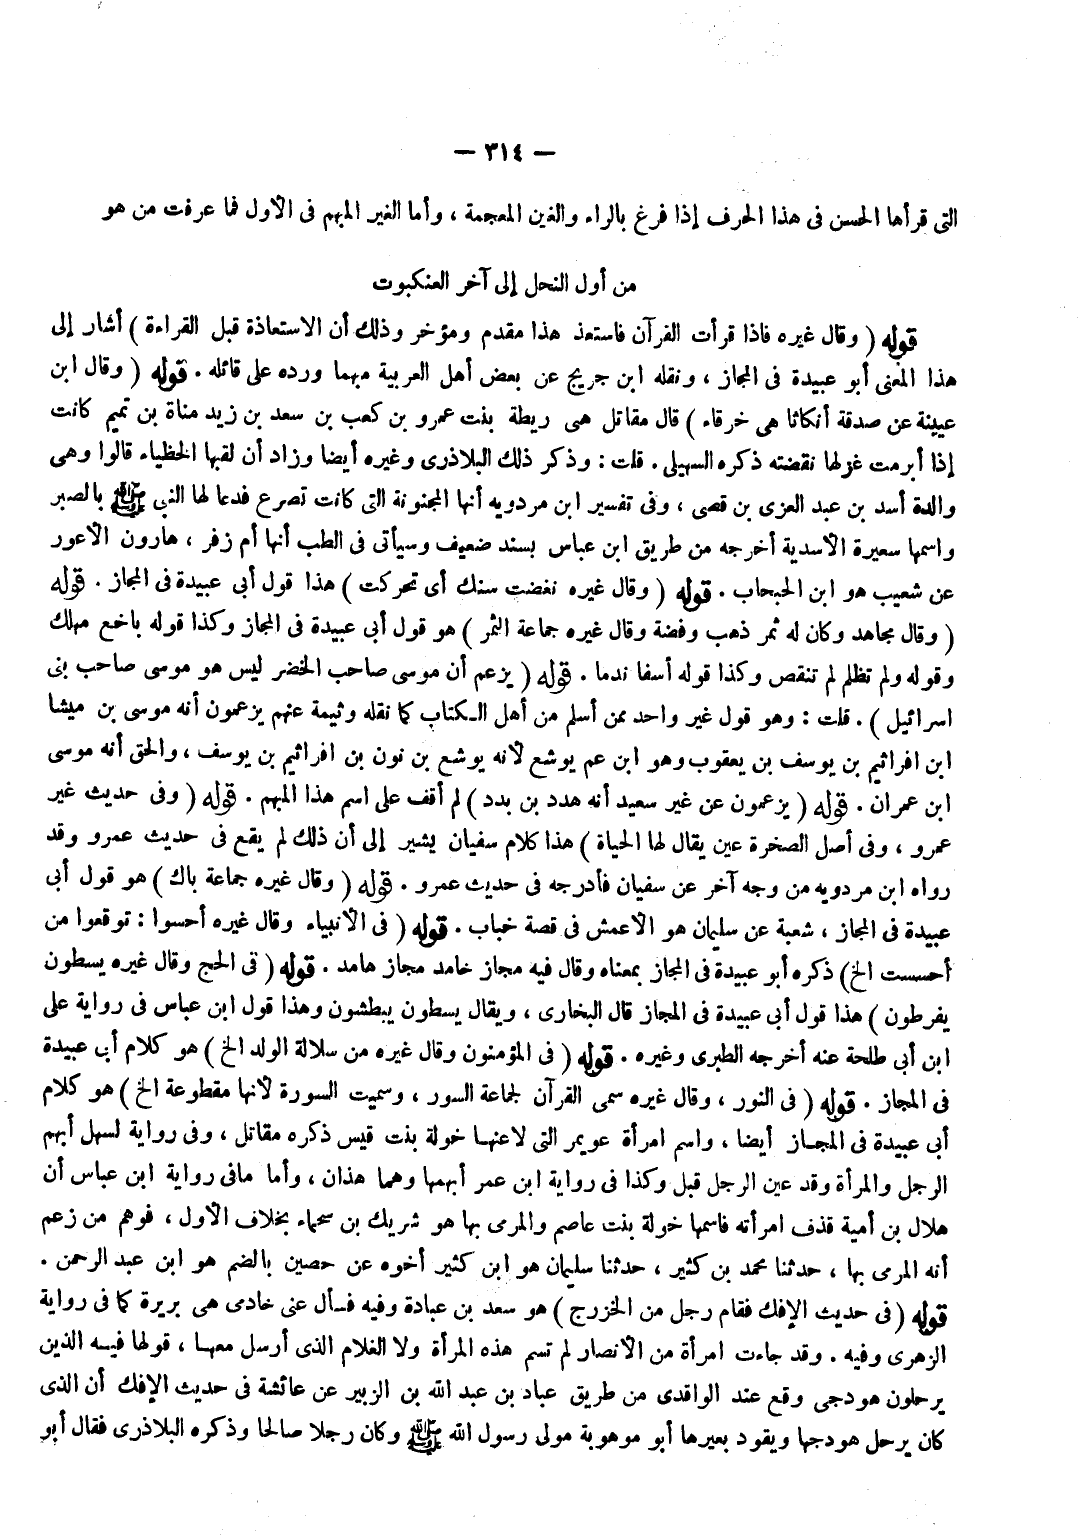 — ٣١٤ —
التى قرأها الحسن فى هذا الحرف إذا فرغ بالراء والغين المعجمة ، وأما الغير المبهم فى الأول فما عرفت من هو
من أول النحل إلى آخر العنكبوت
قوله ( وقال غيره فاذا قرأت القرآن فاستعذ هذا مقدم ومؤخر وذلك أن الاستعاذة قبل القراءة ) أشار إلى
هذا المعنى أبو عبيدة فى المجاز ، ونقله ابن جريج عن بعض أهل العربية مبهما ورده على قائله . قوله ( وقال ابن
عيينة عن صدقة أنكاثا هى خرقاء ) قال مقاتل هى ريطة بنت عمرو بن كعب بن سعد بن زيد مناة بن تميم كانت
إذا أبرمت غزلها نقضته ذكره السهيلى . قلت : وذكر ذلك البلاذرى وغيره أيضا وزاد أن لقبها الحظياء قالوا وهى
والدة أسد بن عبد العزى بن قصى ، وفى تفسير ابن مردويه أنها المجنونة التى كانت تصرع فدعا لها النبى ﷺ بالصبر
واسمها سعيرة الأسدية أخرجه من طريق ابن عباس بسند ضعيف وسيأتى فى الطب أنها أم زفر ، هارون الأعور
عن شعيب هو ابن الحبحاب . قوله ( وقال غيره نغضت سنك أى تحركت ) هذا قول أبى عبيدة فى المجاز . قوله
( وقال مجاهد وكان له ثمر ذهب وفضة وقال غيره جماعة الثمر ) هو قول أبى عبيدة فى المجاز وكذا قوله باخع مهلك
وقوله ولم تظلم لم تنقص وكذا قوله أسفا ندما . قوله ( يزعم أن موسى صاحب الخضر ليس هو موسى صاحب بنى
اسرائيل ) . قلت : وهو قول غير واحد ممن أسلم من أهل الكتاب كما نقله وثيمة عنهم يزعمون أنه موسى بن ميشا
ابن افراثيم بن يوسف بن يعقوب وهو ابن عم يوشع لأنه يوشع بن نون بن افراثيم بن يوسف ، والحق أنه موسى
ابن عمران . قوله ( يزعمون عن غير سعيد أنه هدد بن بدد ) لم أقف على اسم هذا المبهم . قوله ( وفى حديث غير
عمرو ، وفى أصل الصخرة عين يقال لها الحياة ) هذا كلام سفيان يشير إلى أن ذلك لم يقع فى حديث عمرو وقد
رواه ابن مردويه من وجه آخر عن سفيان فأدرجه فى حديث عمرو . قوله ( وقال غيره جماعة باك ) هو قول أبى
عبيدة فى المجاز ، شعبة عن سليمان هو الأعمش فى قصة خباب . قوله ( فى الأنبياء وقال غيره أحسوا : توقعوا من
أحسست الخ ) ذكره أبو عبيدة فى المجاز بمعناه وقال فيه مجاز خامد مجاز هامد . قوله ( فى الحج وقال غيره يسطون
يفرطون ) هذا قول أبى عبيدة فى المجاز قال البخارى ، ويقال يسطون يبطشون وهذا قول ابن عباس فى رواية على
ابن أبى طلحة عنه أخرجه الطبرى وغيره . قوله ( فى المؤمنون وقال غيره من سلالة الولد الخ ) هو كلام أبى عبيدة
فى المجاز . قوله ( فى النور ، وقال غيره سمى القرآن لجماعة السور ، وسميت السورة لأنها مقطوعة الخ ) هو كلام
أبى عبيدة فى المجاز أيضا ، واسم امرأة عويمر التى لاعنها خولة بنت قيس ذكره مقاتل ، وفى رواية لسهل أبهم
الرجل والمرأة وقد عين الرجل قبل وكذا فى رواية ابن عمر أبهمها وهما هذان ، وأما مافى رواية ابن عباس أن
هلال بن أمية قذف امرأته فاسمها خولة بنت عاصم والمرمى بها هو شريك بن سحماء بخلاف الأول ، فوهم من زعم
أنه المرمى بها ، حدثنا محمد بن كثير ، حدثنا سليمان هو ابن كثير أخوه عن حصين بالضم هو ابن عبد الرحمن .
قوله ( فى حديث الإفك فقام رجل من الخزرج ) هو سعد بن عبادة وفيه فسأل عنى خادمى هى بريرة كما فى رواية
الزهرى وفيه . وقد جاءت امرأة من الأنصار لم تسم هذه المرأة ولا الغلام الذى أرسل معها ، قولها فيه الذين
يرحلون هودجى وقع عند الواقدى من طريق عباد بن عبد الله بن الزبير عن عائشة فى حديث الإفك أن الذى
كان يرحل هودجها ويقود بعيرها أبو موهوبة مولى رسول الله ﷺ وكان رجلا صالحا وذكره البلاذرى فقال أبو